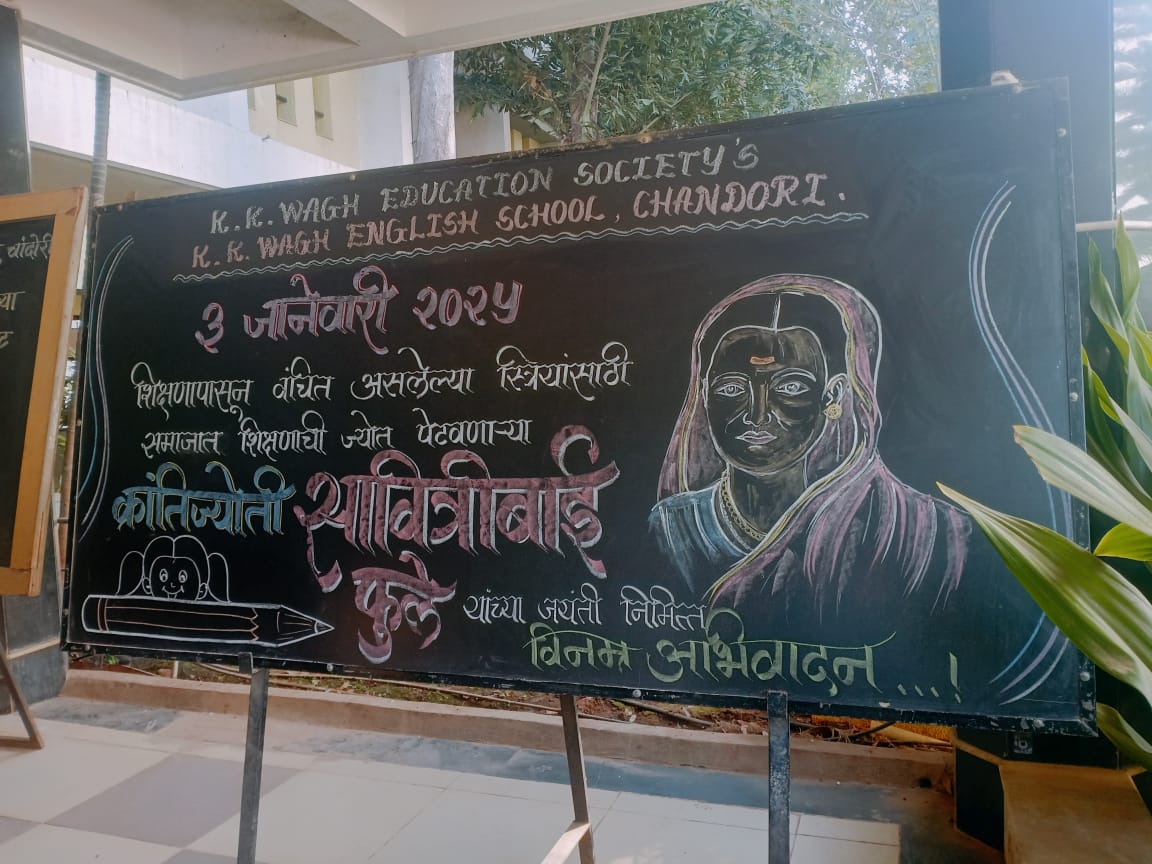 K. K. WAGH EDUCATION SOCIETY'S
K. K. WAGH ENGLISH SCHOOL, CHANDORI.
३ जानेवारी २०२५
शिक्षणापासून वंचित असलेल्या स्त्रियांसाठी
समाजात शिक्षणाची ज्योत पेटवणाऱ्या
क्रांतिज्योती सावित्रीबाई
फुले यांच्या जयंती निमित्त
विनम्र अभिवादन ...!
चांदोरी